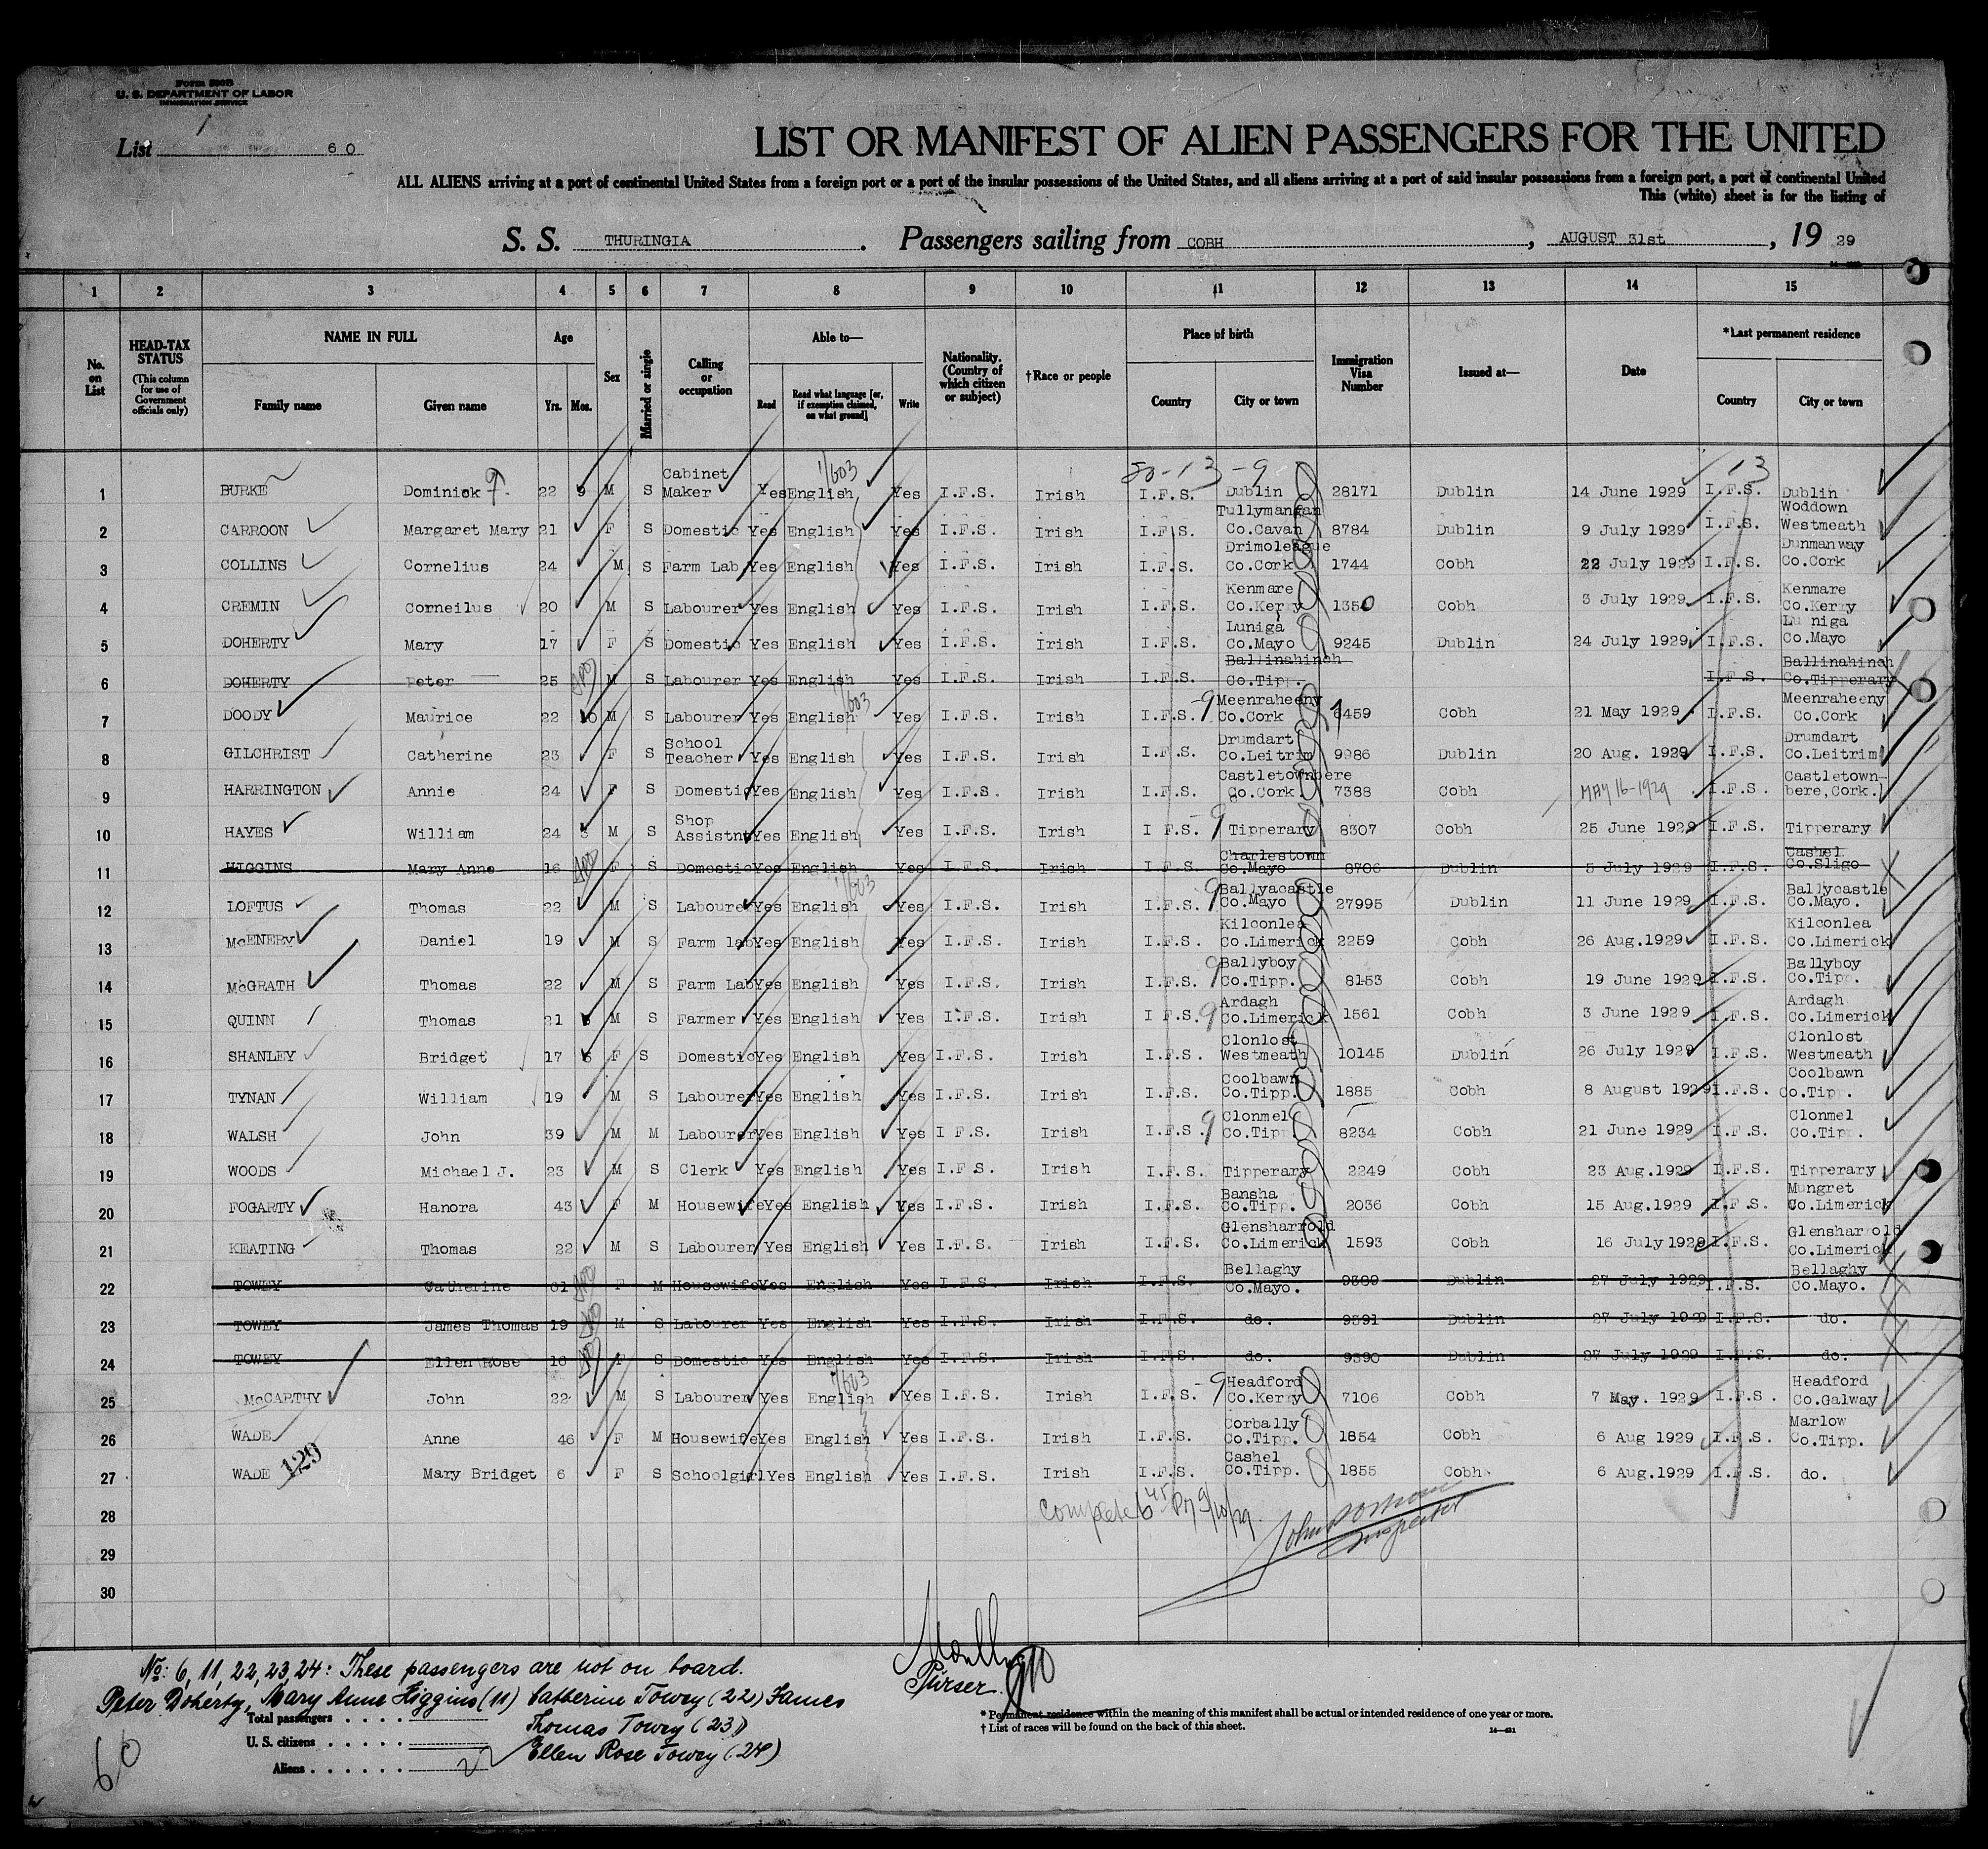 Form 500B
U. S. DEPARTMENT OF LABOR
IMMIGRATION SERVICE
List 1 60
LIST OR MANIFEST OF ALIEN PASSENGERS FOR THE UNITED
ALL ALIENS arriving at a port of continental United States from a foreign port or a port of the insular possessions of the United States, and all aliens arriving at a port of said insular possessions from a foreign port, a port of continental United
This (white) sheet is for the listing of
S. S. THURINGIA. Passengers sailing from COBH, AUGUST 31st, 19 29
1 2 3 4 5 6 7 8 9 10 11 12 13 14 15
No. on List
HEAD-TAX STATUS (This column for use of Government officials only)
NAME IN FULL Family name Given name
Age Yrs. Mos.
Sex
Married or single
Calling or occupation
Able to— Read Read what language [or, if exemption claimed, on what ground] Write
Nationality. (Country of which citizen or subject)
†Race or people
Place of birth Country City or town
Immigration Visa Number
Issued at—
Date
*Last permanent residence Country City or town
1/603 80-13 -9 13
1 BURKE Dominick 22 9 M S Cabinet Maker Yes English Yes I.F.S. Irish I.F.S. Dublin 28171 Dublin 14 June 1929 I.F.S. Dublin
2 CARROON Margaret Mary 21 F S Domestic Yes English Yes I.F.S. Irish I.F.S. Tullymangan Co.Cavan 8784 Dublin 9 July 1929 I.F.S. Woddown Westmeath
3 COLLINS Cornelius 24 M S Farm Lab Yes English Yes I.F.S. Irish I.F.S. Drimoleague Co.Cork 1744 Cobh 22 July 1929 I.F.S. Dunmanway Co.Cork
4 CREMIN Corneilus 20 M S Labourer Yes English Yes I.F.S. Irish I.F.S. Kenmare Co.Kerry 1350 Cobh 3 July 1929 I.F.S. Kenmare Co.Kerry
5 DOHERTY Mary 17 F S Domestic Yes English Yes I.F.S. Irish I.F.S. Luniga Co.Mayo 9245 Dublin 24 July 1929 I.F.S. Lu niga Co.Mayo
6 DOHERTY Peter 25 M S Labourer Yes English Yes I.F.S. Irish I.F.S. Ballinahinch Co.Tipp. I.F.S. Ballinahinch Co.Tipperary
7 DOODY Maurice 22 10 M S Labourer Yes English 1/603 Yes I.F.S. Irish I.F.S. -9 Meenraheeny Co.Cork 6459 Cobh 21 May 1929 I.F.S. Meenraheeny Co.Cork
8 GILCHRIST Catherine 23 F S School Teacher Yes English Yes I.F.S. Irish I.F.S. Drumdart Co.Leitrim 9986 Dublin 20 Aug. 1929 I.F.S. Drumdart Co.Leitrim
9 HARRINGTON Annie 24 F S Domestic Yes English Yes I.F.S. Irish I.F.S. Castletownbere Co.Cork 7388 Cobh MAY 16-1929 I.F.S. Castletown-bere, Cork.
10 HAYES William 24 3 M S Shop Assistnt Yes English Yes I.F.S. Irish I F.S. -9 Tipperary 8307 Cobh 25 June 1929 I.F.S. Tipperary
11 HIGGINS Mary Anne 16 F S Domestic Yes English Yes I.F.S. Irish I.F.S. Charlestown Co.Mayo 8706 Dublin 5 July 1929 I.F.S. Cashel Co.Sligo
12 LOFTUS Thomas 22 M S Labourer Yes English 1/603 Yes I.F.S. Irish I.F.S. 9 Ballyacastle Co.Mayo 27995 Dublin 11 June 1929 I.F.S. Ballycastle Co.Mayo.
13 McENERY Daniel 19 M S Farm lab Yes English Yes I.F.S. Irish I.F.S. Kilconlea Co.Limerick 2259 Cobh 26 Aug.1929 I.F.S. Kilconlea Co.Limerick
14 McGRATH Thomas 22 M S Farm Lab Yes English Yes I.F.S. Irish I.F.S. 9 Ballyboy Co.Tipp. 8153 Cobh 19 June 1929 I.F.S. Ballyboy Co.Tipp.
15 QUINN Thomas 21 M S Farmer Yes English Yes I.F.S. Irish I F.S. 9 Ardagh Co.Limerick 1561 Cobh 3 June 1929 I.F.S. Ardagh Co.Limerick
16 SHANLEY Bridget 17 6 F S Domestic Yes English Yes I.F.S. Irish I.F.S. Clonlost Westmeath 10145 Dublin 26 July 1929 I.F.S. Clonlost Westmeath
17 TYNAN William 19 M S Labourer Yes English Yes I.F.S. Irish I.F.S. Coolbawn Co.Tipp. 1885 Cobh 8 August 1929 I.F.S. Coolbawn Co.Tipp.
18 WALSH John 39 M M Labourer Yes English Yes I F.S. Irish I.F.S. 9 Clonmel Co.Tipp 8234 Cobh 21 June 1929 I.F.S. Clonmel Co.Tipp.
19 WOODS Michael J. 23 M S Clerk Yes English Yes I.F.S. Irish I.F.S. Tipperary 2249 Cobh 23 Aug.1929 I.F.S. Tipperary
20 FOGARTY Hanora 43 F M Housewife Yes English Yes I.F.S. Irish I.F.S. Bansha Co.Tipp. 2036 Cobh 15 Aug.1929 I.F.S. Mungret Co.Limerick
21 KEATING Thomas 22 M S Labourer Yes English Yes I.F.S. Irish I.F.S. Glensharrold Co.Limerick 1593 Cobh 16 July 1929 I.F.S. Glensharrold Co.Limerick
22 TOWEY Catherine 61 F M Housewife Yes English Yes I.F.S. Irish I.F.S. Bellaghy Co.Mayo. 9389 Dublin 27 July 1929 I.F.S. Bellaghy Co.Mayo.
23 TOWEY James Thomas 19 M S Labourer Yes English Yes I.F.S. Irish I.F.S. do. 9391 Dublin 27 July 1929 I.F.S. do.
24 TOWEY Ellen Rose 16 F S Domestic Yes English Yes I.F.S. Irish I.F.S. do. 9390 Dublin 27 July 1929 I.F.S. do.
25 McCARTHY John 22 M S Labourer Yes English 1/603 Yes I.F.S. Irish I.F.S. -9 Headford Co.Kerry 7106 Cobh 7 May. 1929 I.F.S. Headford Co.Galway
26 WADE Anne 46 F M Housewife Yes English Yes I.F.S. Irish I.F.S. Corbally Co.Tipp. 1854 Cobh 6 Aug 1929 I.F.S. Marlow Co.Tipp.
27 WADE 129 Mary Bridget 6 F S Schoolgirl Yes English Yes I.F.S. Irish I.F.S. Cashel Co.Tipp. 1855 Cobh 6 Aug.1929 I.F.S. do.
28 Completed 6 45 PM 9/10/29
29 John Inspector
30
No: 6, 11, 22, 23, 24: These passengers are not on board.
Purser
Peter Doherty, Mary Anne Higgins (11) Catherine Towey (22) James
Total passengers . . . . Thomas Towey (23)
U. S. citizens . . . . . Ellen Rose Towey (24)
Aliens . . . . . . 22
60
* Permanent residence within the meaning of this manifest shall be actual or intended residence of one year or more.
† List of races will be found on the back of this sheet.
14—431